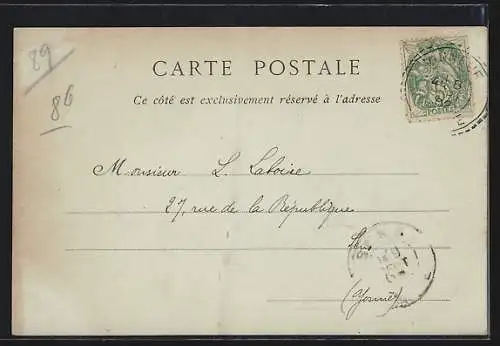 89
86
CARTE POSTALE
Ce côté est exclusivement réservé à l'adresse
Monsieur L. Laboise
27, rue de la République
Sens
(Yonne)